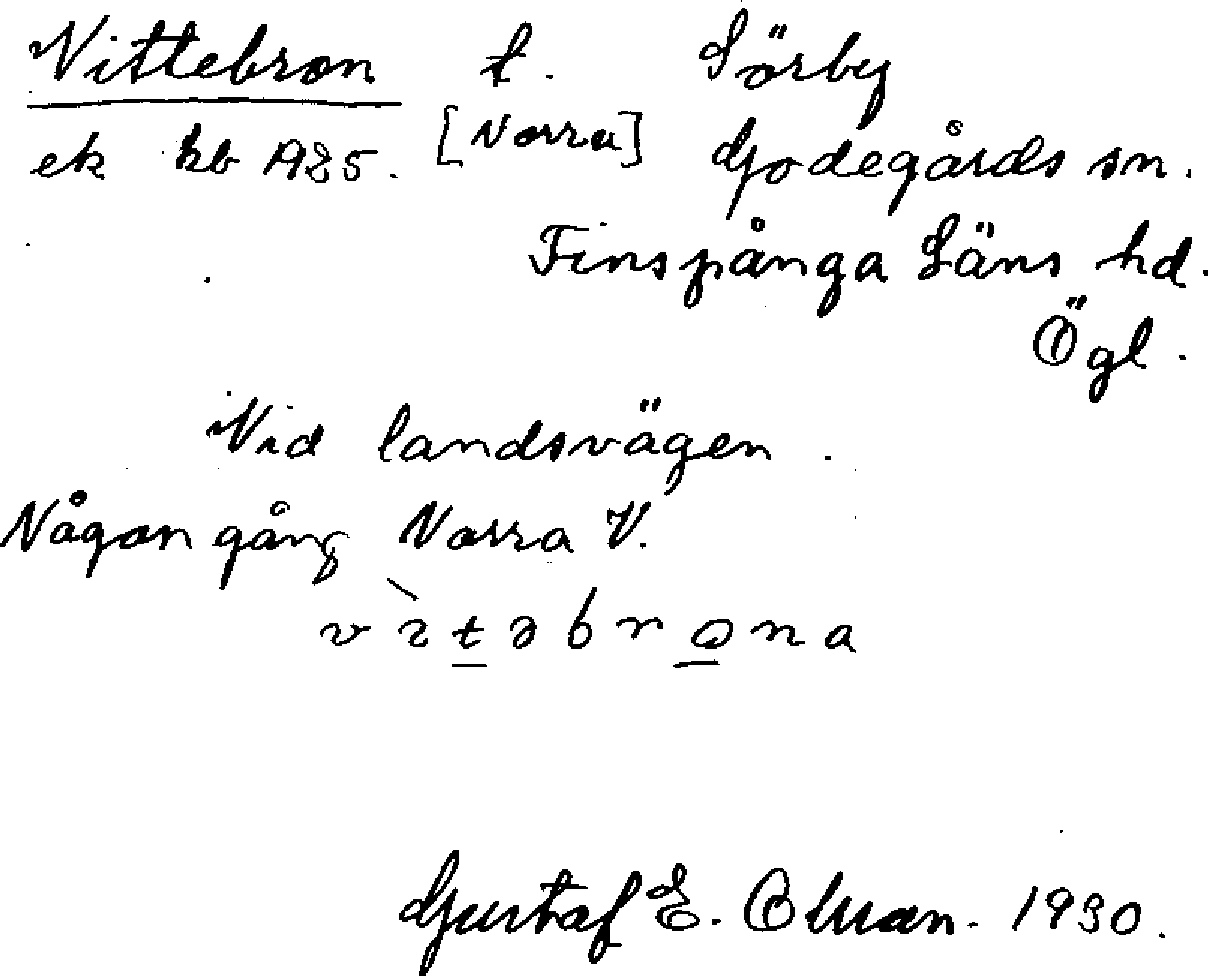 Vittebron t. Sörby
ek kb 1925. [Norra] Godegårds sn.
Finspånga Läns hd.
Ögl.
Vid landsvägen.
Någon gång Norra V.
vìtəbrona
Gustaf E. Olman. 1930.